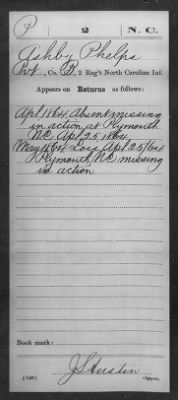 P 2 N.C.
Ashby Phelps
Pvt, Co. B, 2 Reg't North Carolina Inf.
Appears on Returns as follows:
Apl 1864 Absent missing
in action at Plymouth
N.C. Apl 25 1864.
May 1864 Loss Apl 25/64
Plymouth N.C. missing
in action
Book mark:
(546)
J S Austin
Copyist.